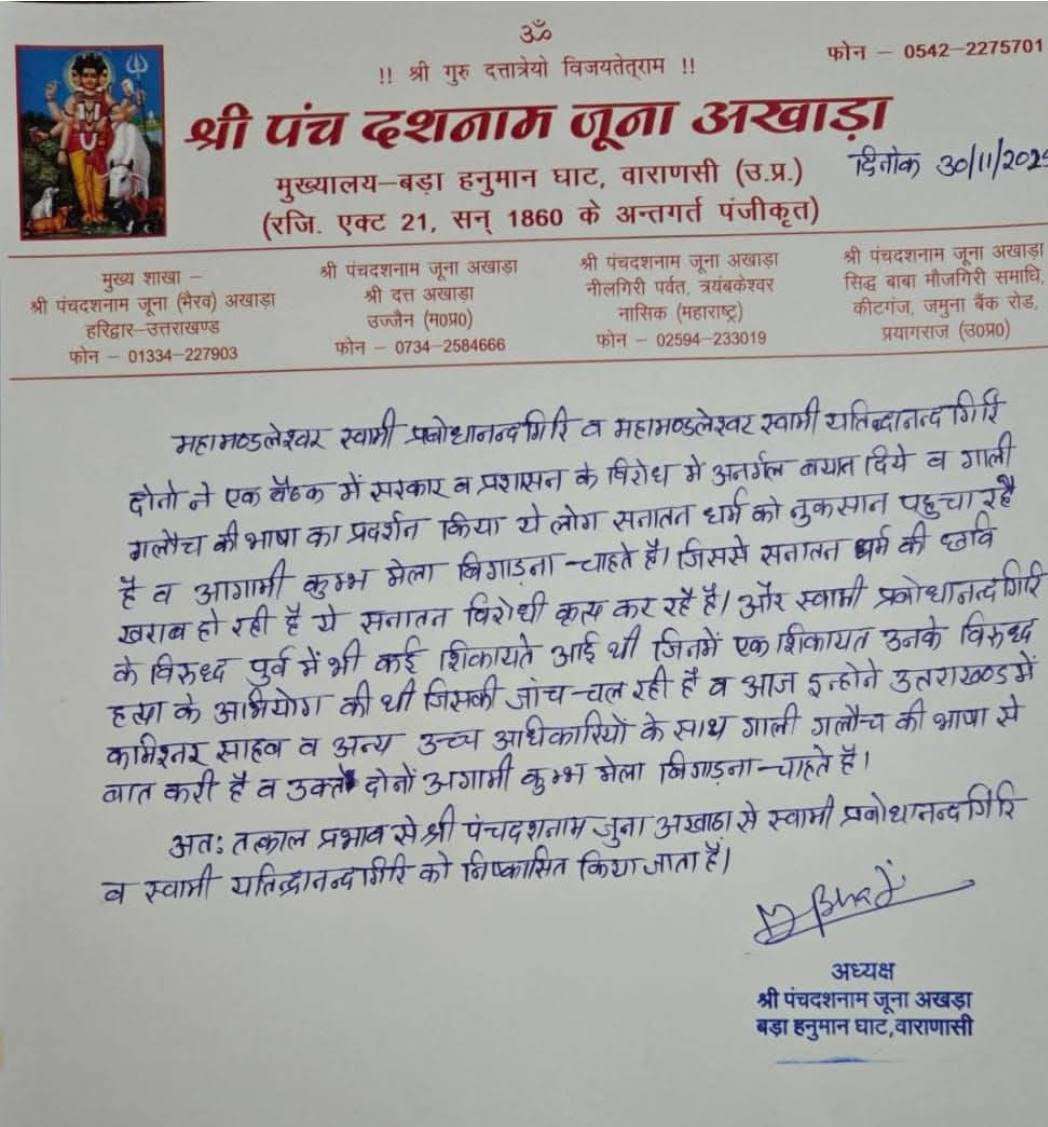 ॐ
!! श्री गुरु दत्तात्रेयो विजयतेतृराम !!
फोन – 0542–2275701
श्री पंच दशनाम जूना अखाड़ा
दिनांक 30/11/202
मुख्यालय–बड़ा हनुमान घाट, वाराणसी (उ.प्र.)
(रजि. एक्ट 21, सन् 1860 के अन्तगर्त पंजीकृत)
मुख्य शाखा –
श्री पंचदशनाम जूना (भैरव) अखाड़ा
हरिद्वार–उत्तराखण्ड
फोन – 01334–227903
श्री पंचदशनाम जूना अखाड़ा
श्री दत्त अखाड़ा
उज्जैन (म0प्र0)
फोन – 0734–2584666
श्री पंचदशनाम जूना अखाड़ा
नीलगिरी पर्वत, त्रयंबकेश्वर
नासिक (महाराष्ट्र)
फोन – 02594–233019
श्री पंचदशनाम जूना अखाड़ा
सिद्ध बाबा मौजगिरी समाधि,
कीटगंज, जमुना बैंक रोड,
प्रयागराज (उ0प्र0)
महामण्डलेश्वर स्वामी प्रबोधानन्द गिरि व महामण्डलेश्वर स्वामी यतिन्द्रानन्द गिरि
दोनो ने एक बैठक में सरकार व प्रशासन के विरोध मे अनर्गल बयान दिये व गाली
गलौच की भाषा का प्रदर्शन किया ये लोग सनातन धर्म को नुकसान पहुचा रहै
है व आगामी कुम्भ मेला बिगाड़ना चाहते है। जिससे सनातन धर्म की छवि
खराब हो रही है ये सनातन विरोधी कृत्य कर रहै है। और स्वामी प्रबोधानन्द गिरि
के विरुध्द पुर्व में भी कई शिकायते आई थी जिनमें एक शिकायत उनके विरुध्द
हत्या के अभियोग की थी जिसकी जांच चल रही है व आज इन्होने उतराखण्ड में
कमिश्नर साहब व अन्य उच्च अधिकारियों के साथ गाली गलौच की भाषा से
बात करी है व उक्त दोनों अगामी कुम्भ मेला बिगाड़ना चाहते है।
अत: तत्काल प्रभाव से श्री पंचदशनाम जुना अखाडा से स्वामी प्रबोधानन्द गिरि
व स्वामी यतिन्द्रानन्द गिरि को निष्कासित किया जाता है।
अध्यक्ष
श्री पंचदशनाम जूना अखड़ा
बड़ा हनुमान घाट,वाराणासी